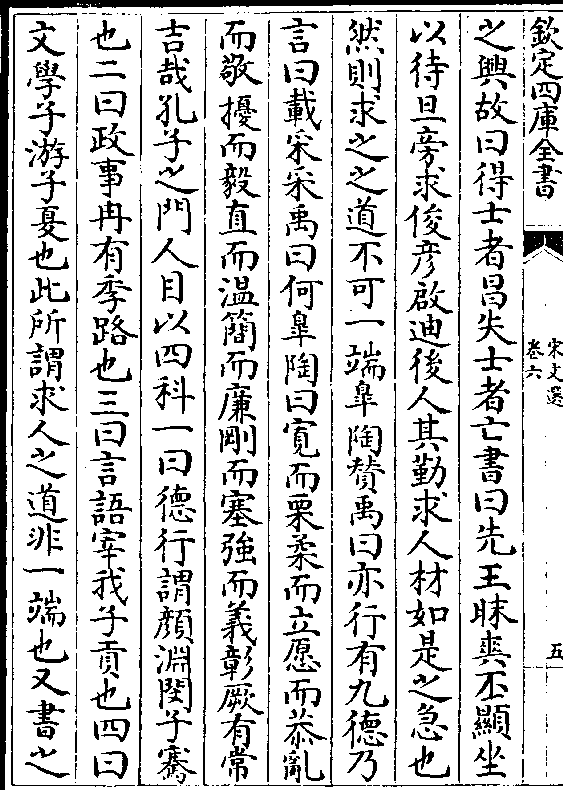 欽定四庫全書
宋文選
卷六
五
之興故曰得士者昌失士者亡書曰先王昧爽丕顯坐
以待旦旁求俊彦啟迪後人其勤求人材如是之急也
然則求之之道不可一端臯陶贊禹曰亦行有九德乃
言曰載采采禹曰何臯陶曰寛而栗柔而立愿而恭亂
而敬擾而毅直而温簡而廉剛而塞強而義彰厥有常
吉哉孔子之門人目以四科一曰德行謂顔淵閔子騫
也二曰政事冉有季路也三曰言語宰我子貢也四曰
文學子游子夏也此所謂求人之道非一端也又書之